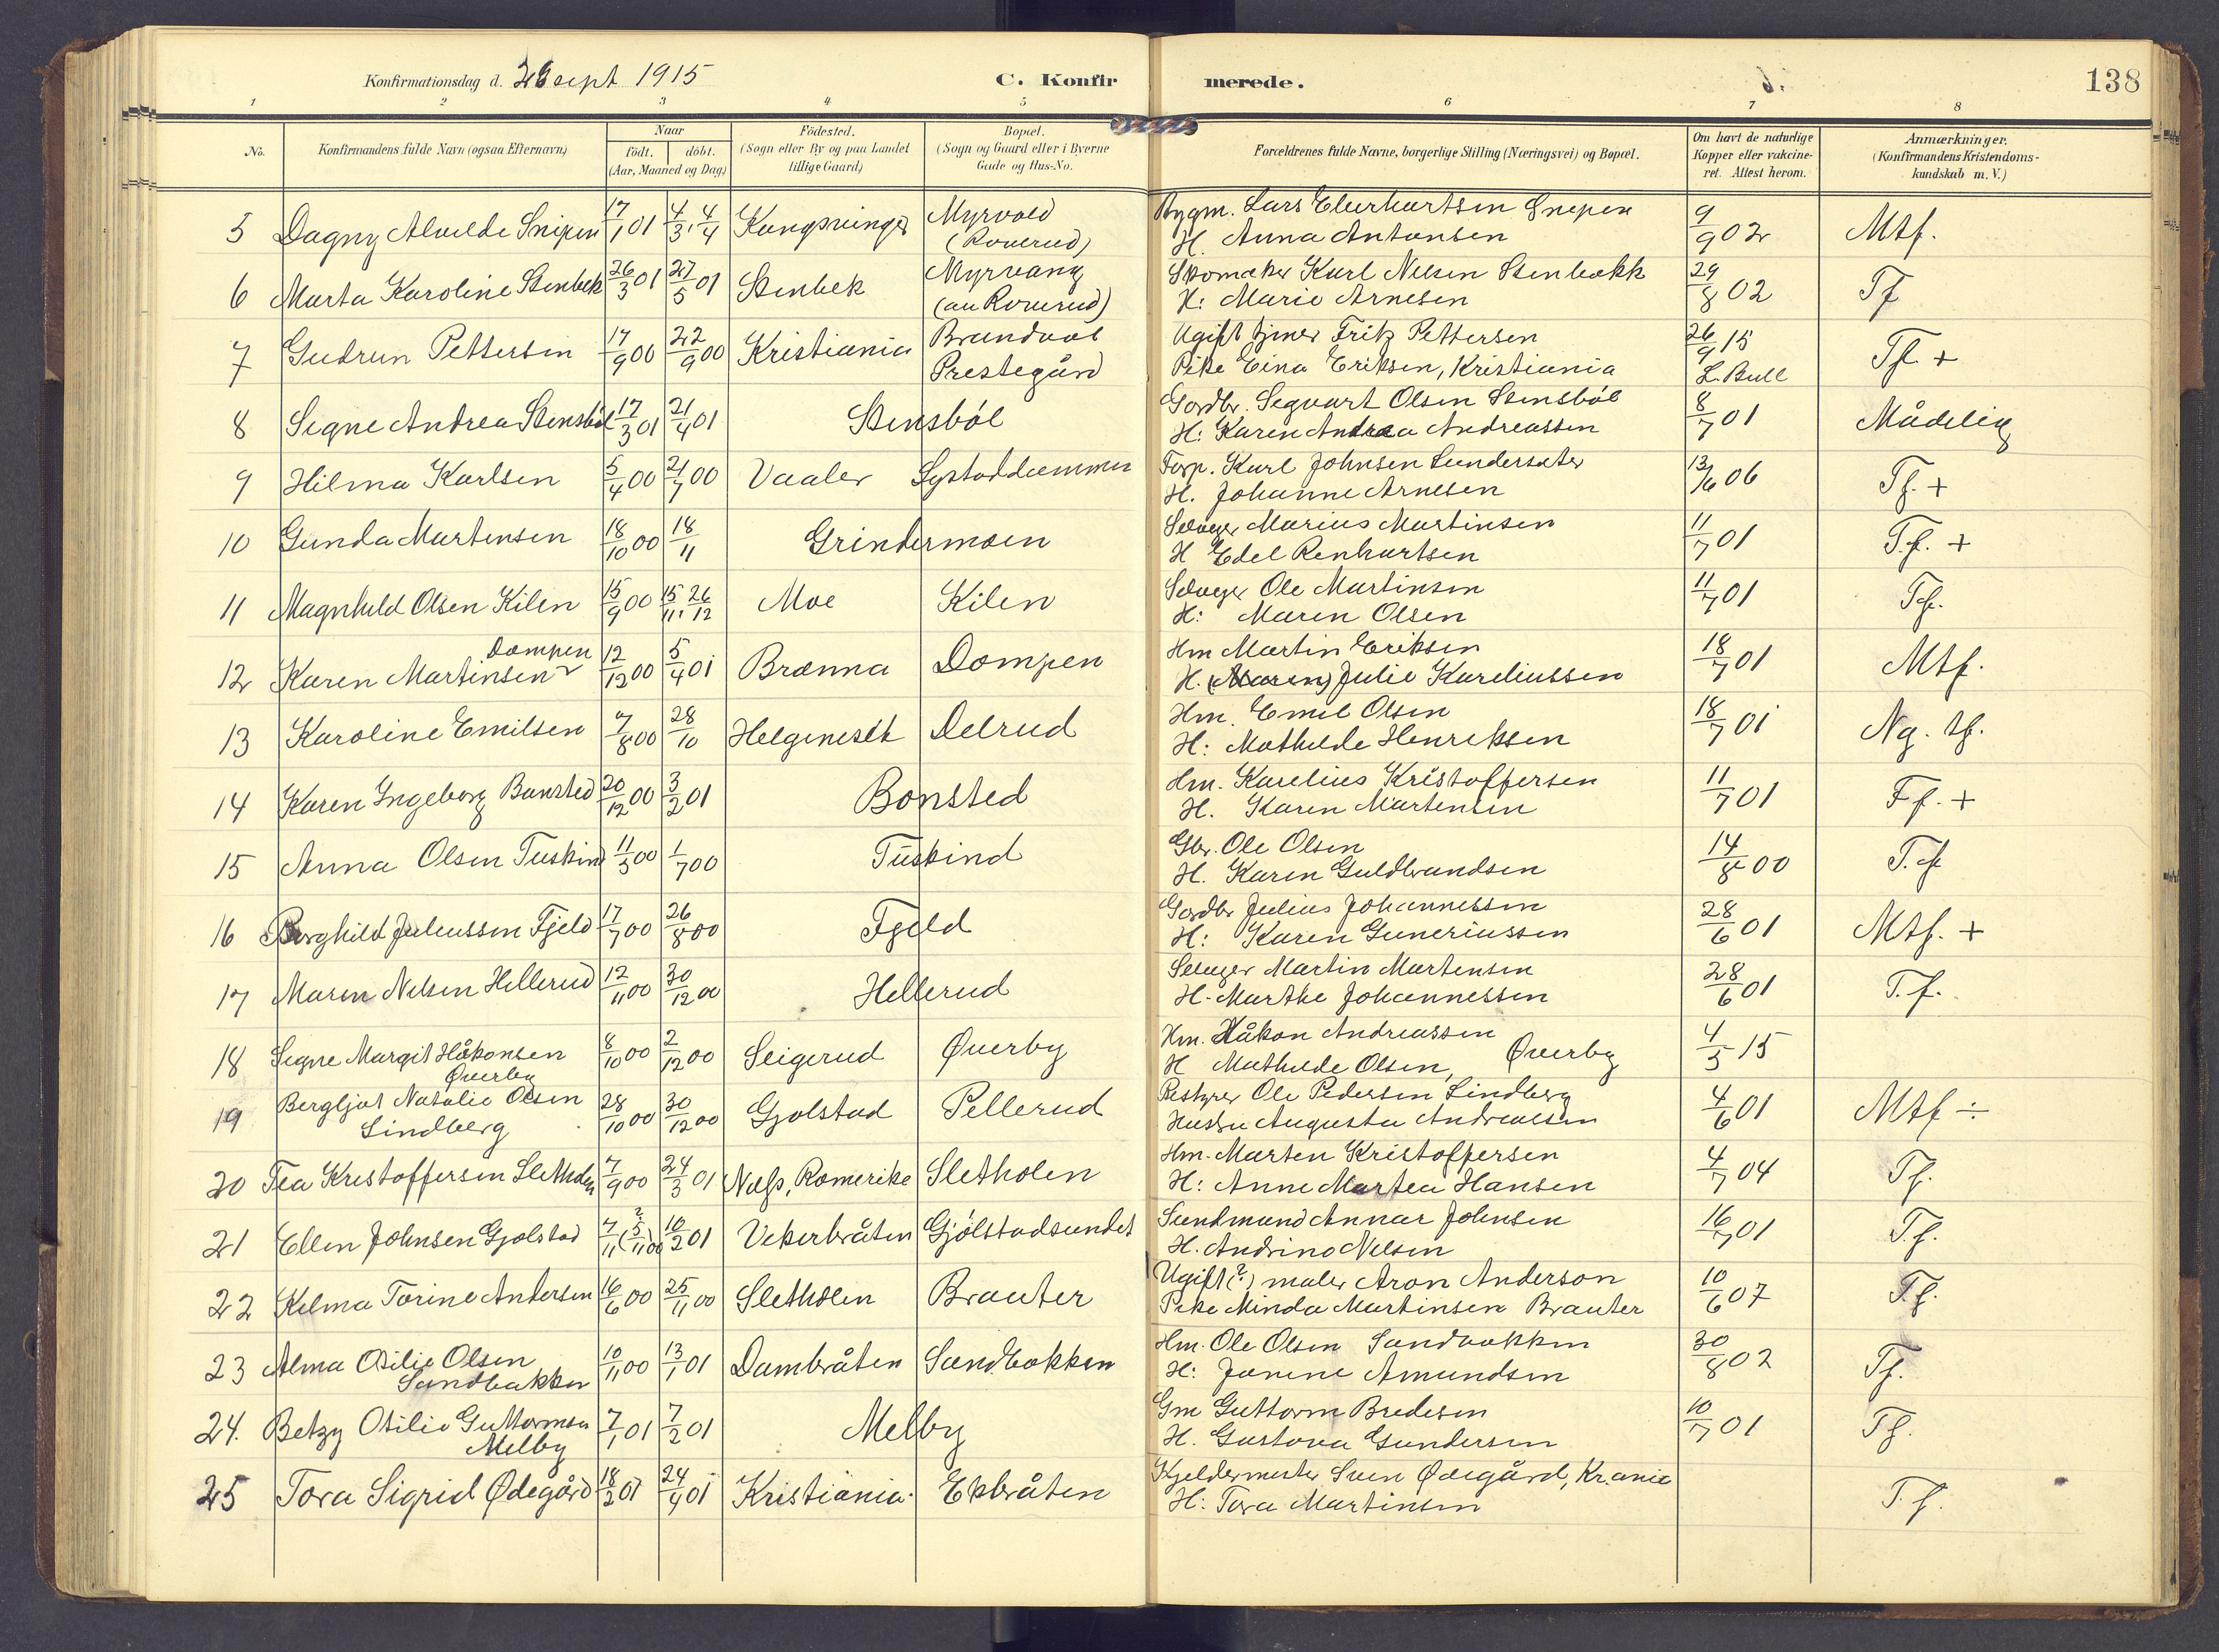 Konfirmationsdag d. 26 sept 1915
C. Konfirmerede.
138
1 2 3 4 5 6 7 8
No.
Konfirmandens fulde Navn (ogsaa Efternavn)
Naar
födt. döbt.
(Aar, Maaned og Dag)
Födested.
(Sogn eller By og paa Landet
tillige Gaard)
Bopæl.
(Sogn og Gaard eller i Byerne
Gade og Hus-No.
Forældrenes fulde Navne, borgerlige Stilling (Næringsvei) og Bopæl.
Om havt de naturlige
Kopper eller vakcine-
ret. Attest herom.
Anmærkninger.
(Konfirmandens Kristendoms-
kundskab m. V.)
5 Dagny Alvilde Snipen 17/1 01 4/3, 4/4 Kongsvinger Myrvold
(Roverud)
Bygm. Lars Eberhartsen Snepen
H. Anna Antonsen
9/9 02 Mtf.
6 Marta Karoline Stenbek 26/3 01 27/5 01 Stenbek Myrvang
(au Roverud)
Skomaker Karl Nilsen Stenbekk
H: Marie Arnesen
29/8 02 Tf
7 Gudrun Pettersen 17/9 00 22/9 00 Kristiania Brandval
Prestegård
Ugift tjener Fritz Pettersen
Pike Eina Eriksen, Kristiania
26/9 15
L. Bull
Tf +
8 Signe Andrea Stensból 17/3 01 21/4 01 Stensból
Gardbr. Segvart Olsen Stensból
H: Karen Andrea Andreassen
8/7 01 Mådelig
9 Hilma Karlsen 5/4 00 21/7 00 Vaaler Systaddammen
Forp. Karl Johnsen Sundersæter
H. Johanne Arnesen
13/6 06 Tf. +
10 Gunda Martensen 18/10 00 18/11 Grindermoen
Selveger Marius Martinsen
H Edel Renhartsen
11/7 01 T.f. +
11 Magnhild Olsen Kilen 15/9 00 15/11, 26/12 Moe Kilen
Selveger Ole Martinsen
H: Maren Olsen
11/7 01 Tf.
12 Karen Martinsen Dompen 12/12 00 5/4 01 Brænna Dompen
Hm Martin Eriksen
H. (Maren) Julie Kareliussen
18/7 01 Mtf.
13 Karoline Emilsen 7/8 00 28/10 Helgeneset Delrud
Hm. Emil Olsen
H: Mathilde Henriksen
18/7 01 Ng. tf.
14 Karen Ingeborg Bonsted 20/12 00 3/2 01 Bonsted
Hm. Karelius Kristoffersen
H. Karen Martensen
11/7 01 Tf. +
15 Anna Olsen Tuskind 11/5 00 1/7 00 Tuskind
Gbr. Ole Olsen
H. Karen Guldbrandsen
14/8 00 T.f
16 Borghild Juliussen Fjeld 17/7 00 26/8 00 Fjeld
Gardbr Julius Johannessen
H: Karen Guneriussen
28/6 01 Mtf. +
17 Maren Nilsen Hellerud 12/11 00 30/12 00 Hellerud
Selveger Martin Martensen
H. Marthe Johannessen
28/6 01 T.f.
18 Signe Margit Håkonsen
Øverby
8/10 00 2/12 00 Seigerud Øverby
Hm. Håkon Andreassen
H Mathilde Olsen, Øverby
4/5 15
19 Bergljot Natalie Olsen
Lindberg
28/10 00 30/12 00 Gjolstad Pellerud
Bestyrer Ole Pedersen Lindberg
Hustru Augusta Andreassen
4/6 01 Mtf ÷
20 Tea Kristoffersen Sletholen 7/9 00 24/3 01 Næss, Romerike Sletholen
Hm. Marten Kristoffersen
H: Anne Martea Hansen
4/7 04 Tf.
21 Ellen Johnsen Gjolstad 7/11 (5/11?) 00 10/2 01 Vekerbråten Gjólstadsundet
Sundmand Annar Johnsen
H. Andrine Nilsen
16/7 01 T.f.
22 Kelma Torine Andersen 16/6 00 25/11 00 Sletholen Brauter
Ugift (?) maler Aron Anderson
Pike Minda Martinsen Brauter
10/6 07 T.f.
23 Alma Otilie Olsen
Sandbakken
10/11 00 13/1 01 Dambråten Sandbakken
Hm. Ole Olsen Sandbakken
H: Janine Amundsen
30/8 02 Tf.
24. Betzy Otilie Guttormsen
Melby
7/1 01 7/2 01 Melby
Gm Guttorm Bredesen
H. Gustava Gundersen
10/7 01 Tf.
25 Tora Sigrid Ødegård 18/2 01 24/4 01 Kristiania. Ekbråten
Kjeldermester Sven Ødegård, Kr.ania
H: Tora Martinsen
T.f.